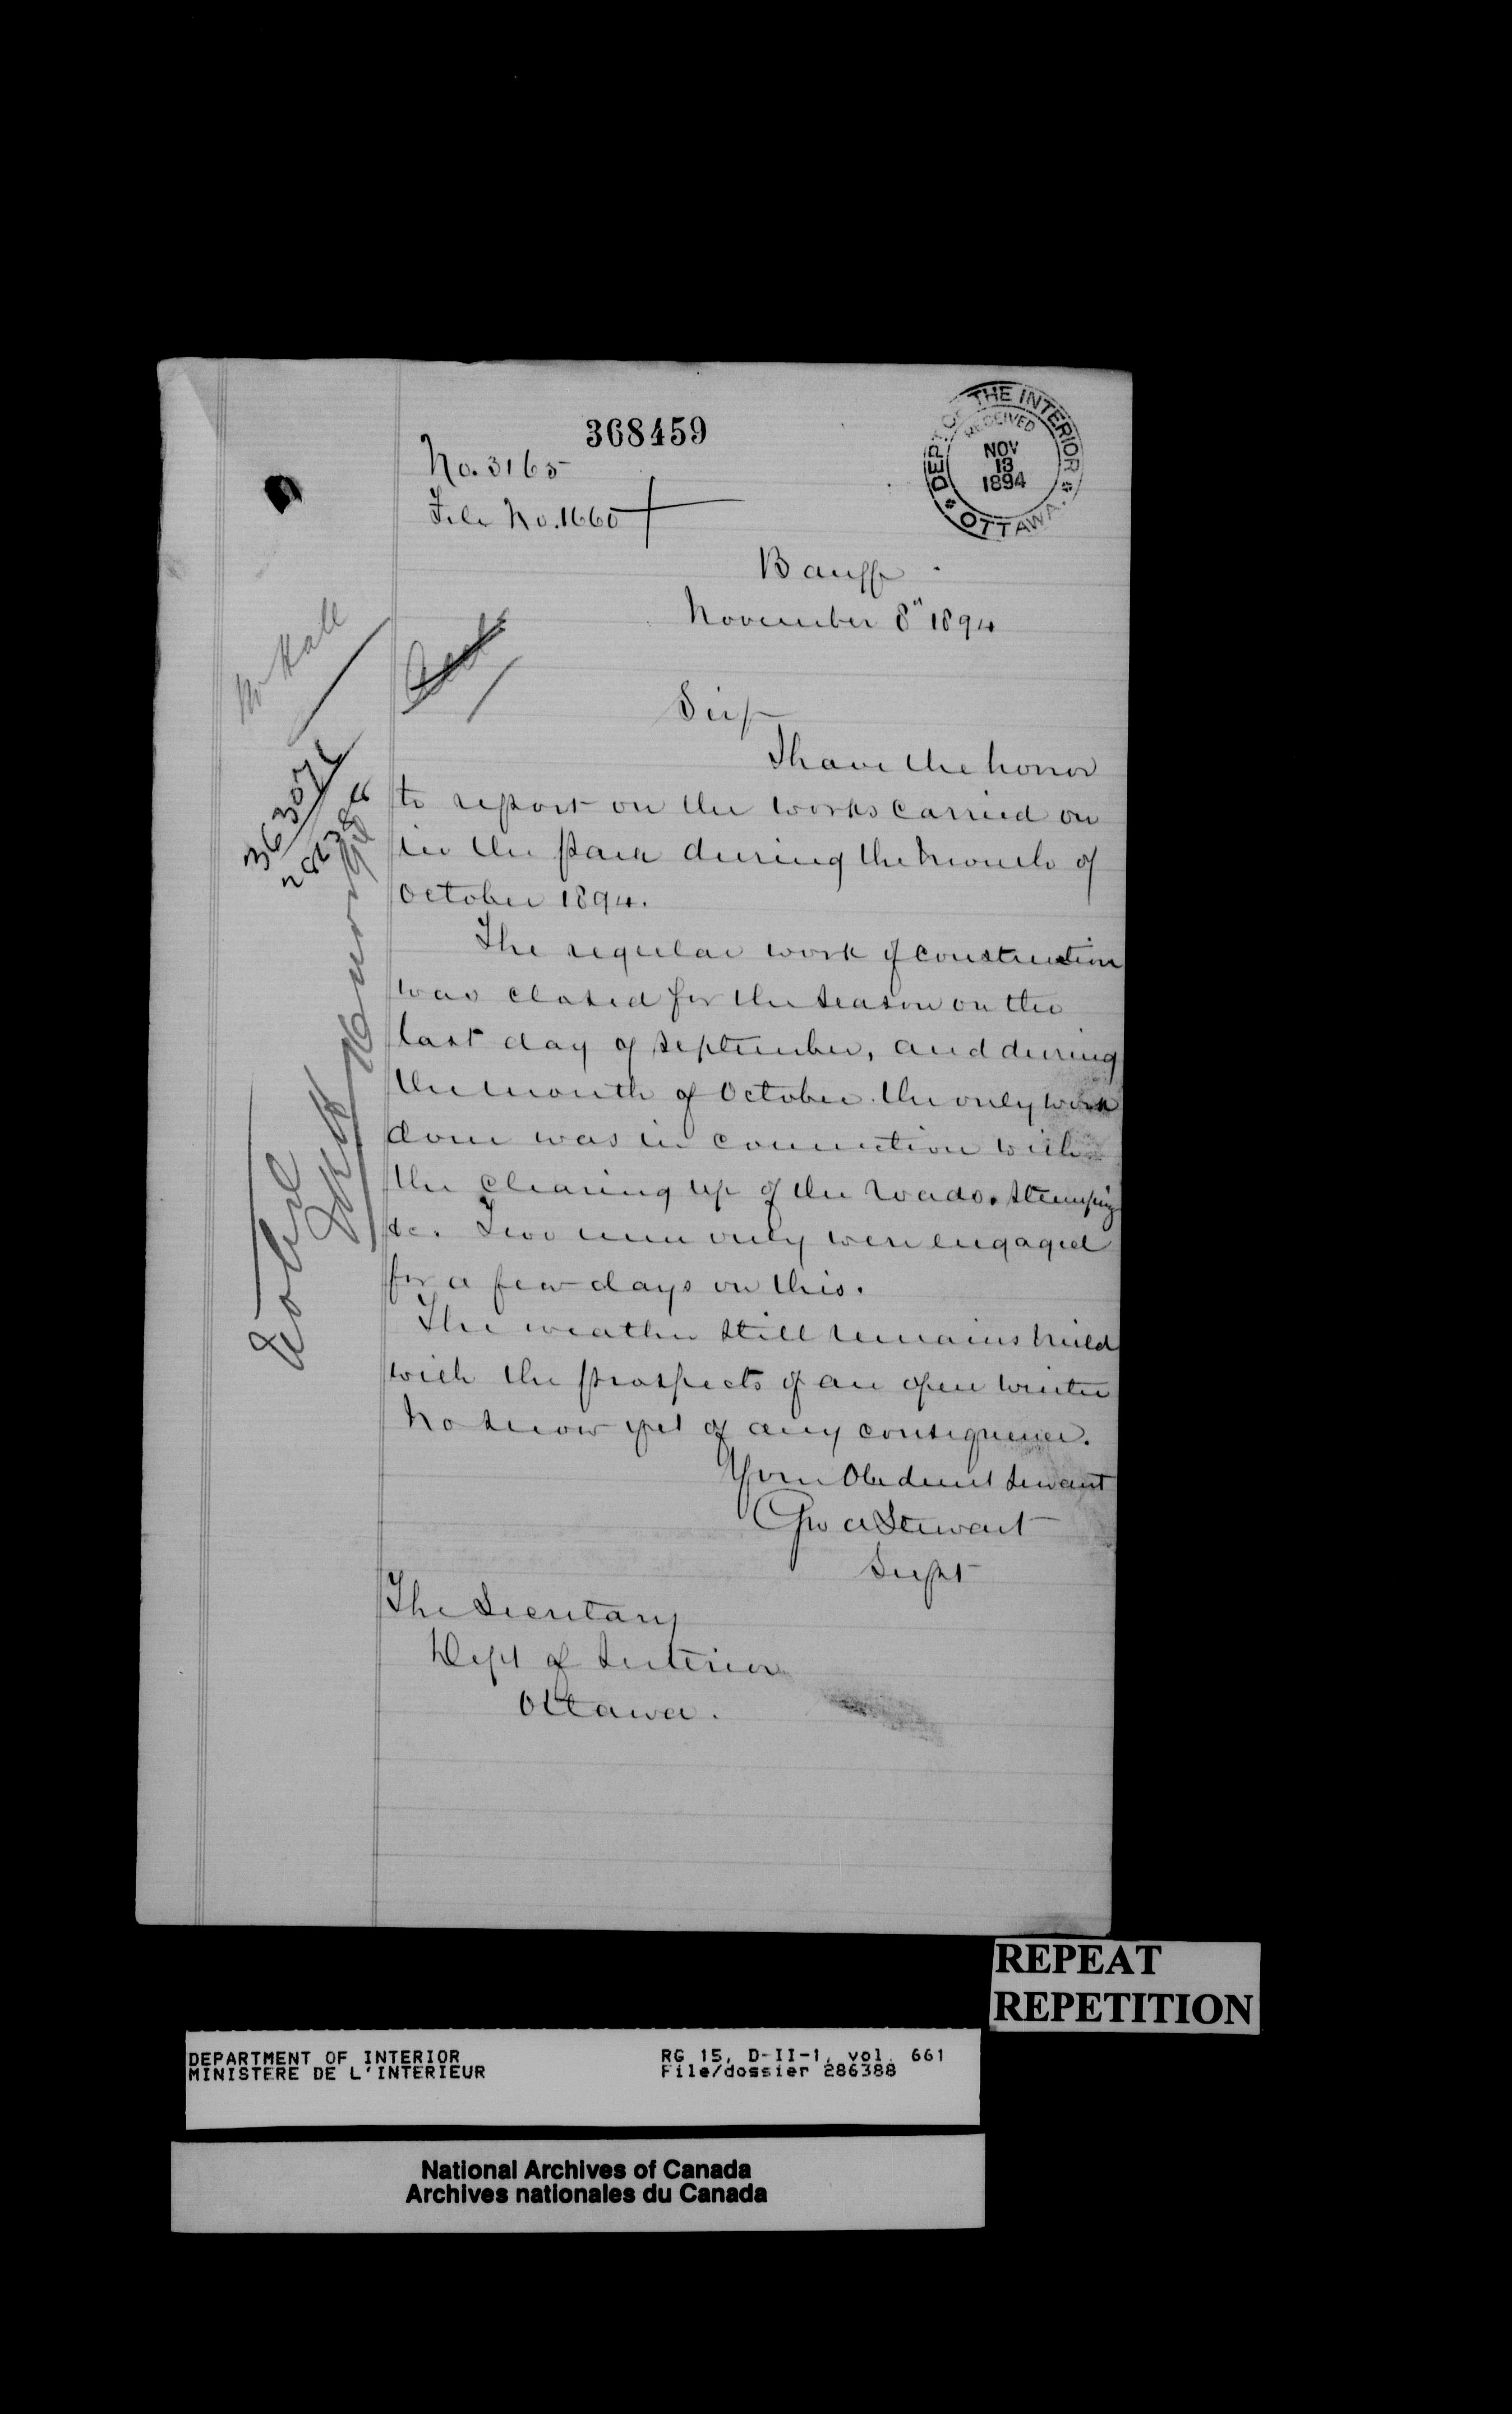 368459
No. 3165
File No. 1660
DEPT OF THE INTERIOR
RECEIVED
NOV
13
1894
OTTAWA.
Banff
November 8" 1894
Mr Hall
363071
Sir,
I have the honor
to report on the works carried on
in the Park during the month of
October 1894.
The regular work of construction
was closed for the season on the
last day of September, and during
the month of October the only work
done was in connection with
the clearing up of the roads. Stumping
&c. Two men only were engaged
for a few days on this.
The weather still remains mild
with the prospects of an open winter
No snow yet of any consequence.
Your Obedient Servant
Geo A Stewart
Supt
The Secretary
Dept of Interior
Ottawa.
REPEAT
REPETITION
DEPARTMENT OF INTERIOR RG 15, D-II-1, vol. 661
MINISTERE DE L'INTERIEUR File/dossier 286388
National Archives of Canada
Archives nationales du Canada